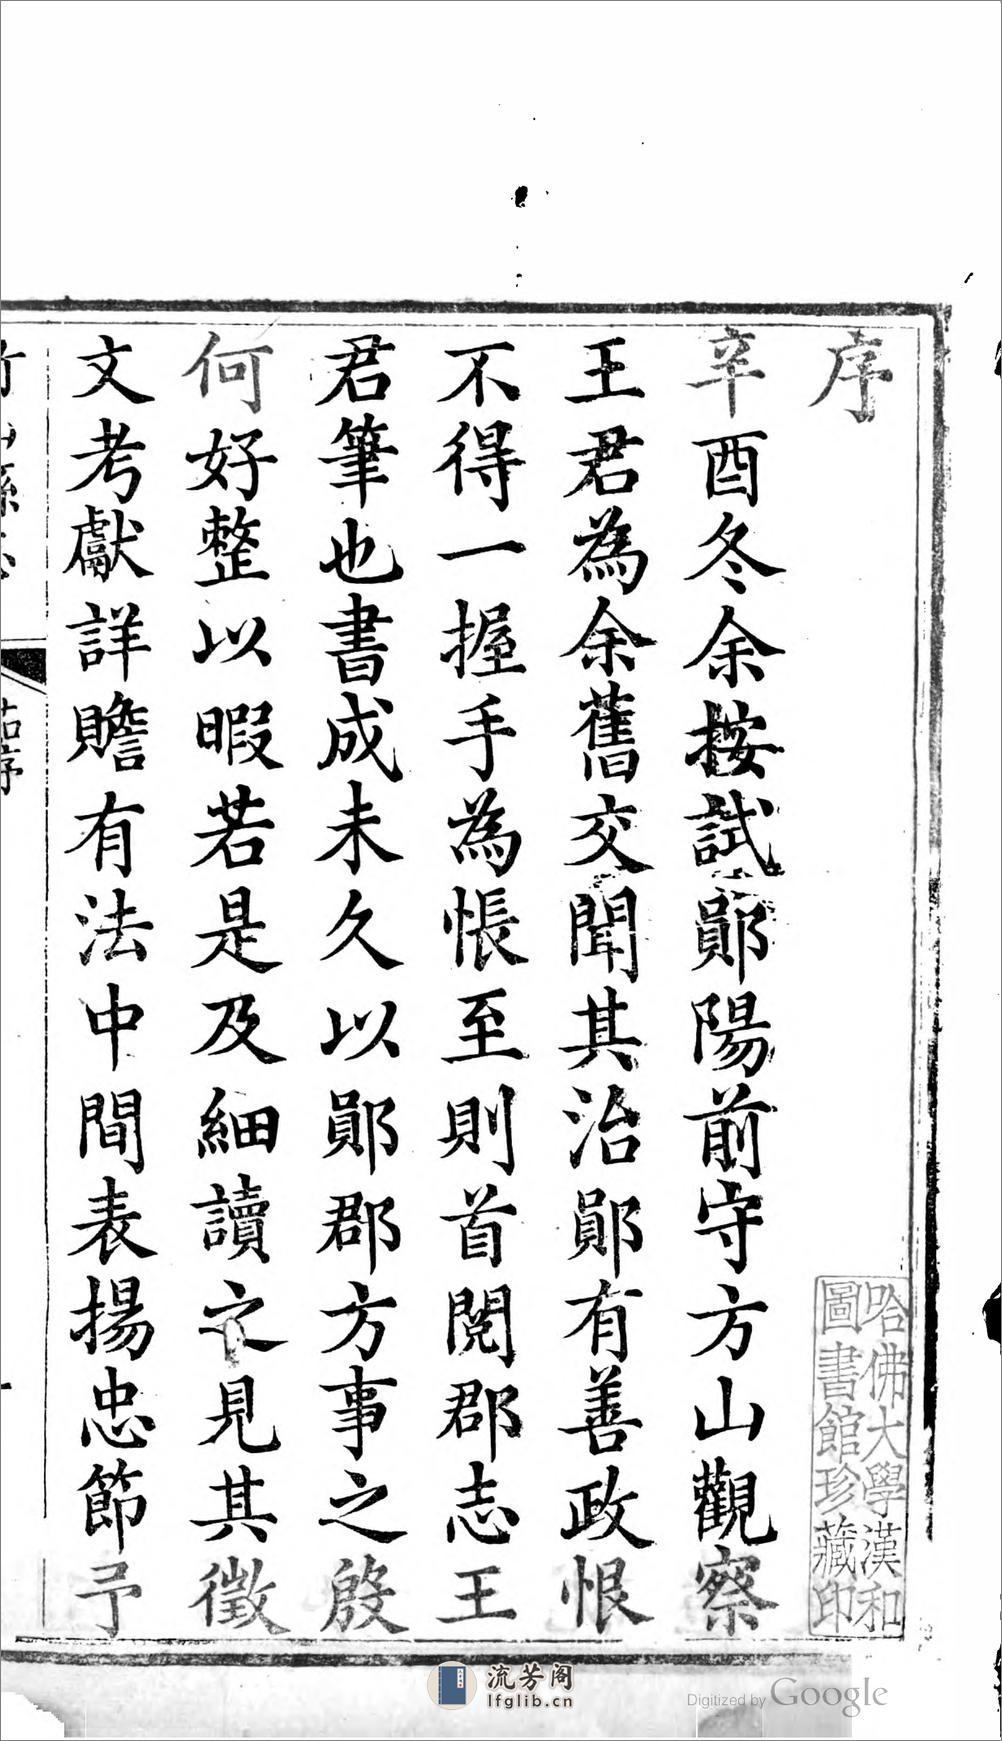 序
辛酉冬余按試鄖陽前守方山觀察
王君為余舊交聞其治鄖有善政恨
不得一握手為悵至則首閱郡志王
君筆也書成未久以鄖郡方事之殷
何好整以暇若是及細讀之見其徵
文考獻詳贍有法中間表揚忠節予
哈佛大學漢和
圖書館珍藏印
流芳阁
lfglib.cn
Digitized by Google